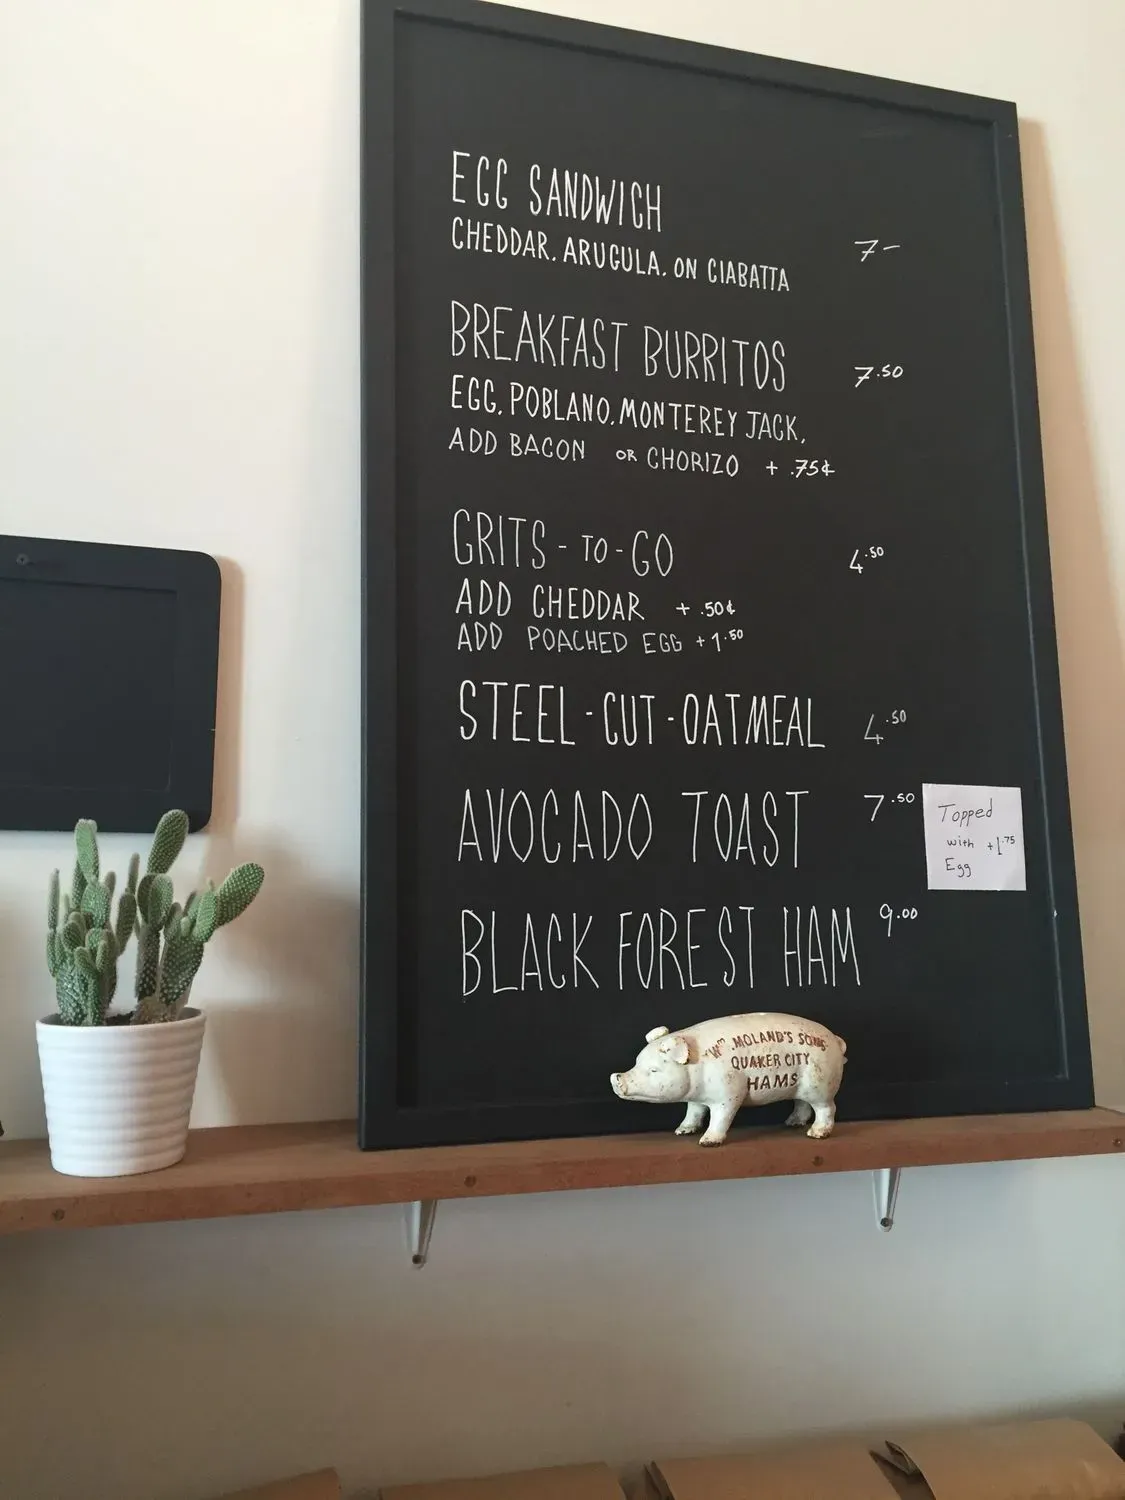 EGG SANDWICH
CHEDDAR. ARUGULA. ON CIABATTA 7-
BREAKFAST BURRITOS 7.50
EGG, POBLANO, MONTEREY JACK,
ADD BACON OR CHORIZO + .75¢
GRITS-TO-GO 4.50
ADD CHEDDAR + .50¢
ADD POACHED EGG +1.50
STEEL-CUT-OATMEAL 4.50
AVOCADO TOAST 7.50
Topped
with +1.75
Egg
BLACK FOREST HAM 9.00
"Wm. MOLAND'S SONS
QUAKER CITY
HAMS